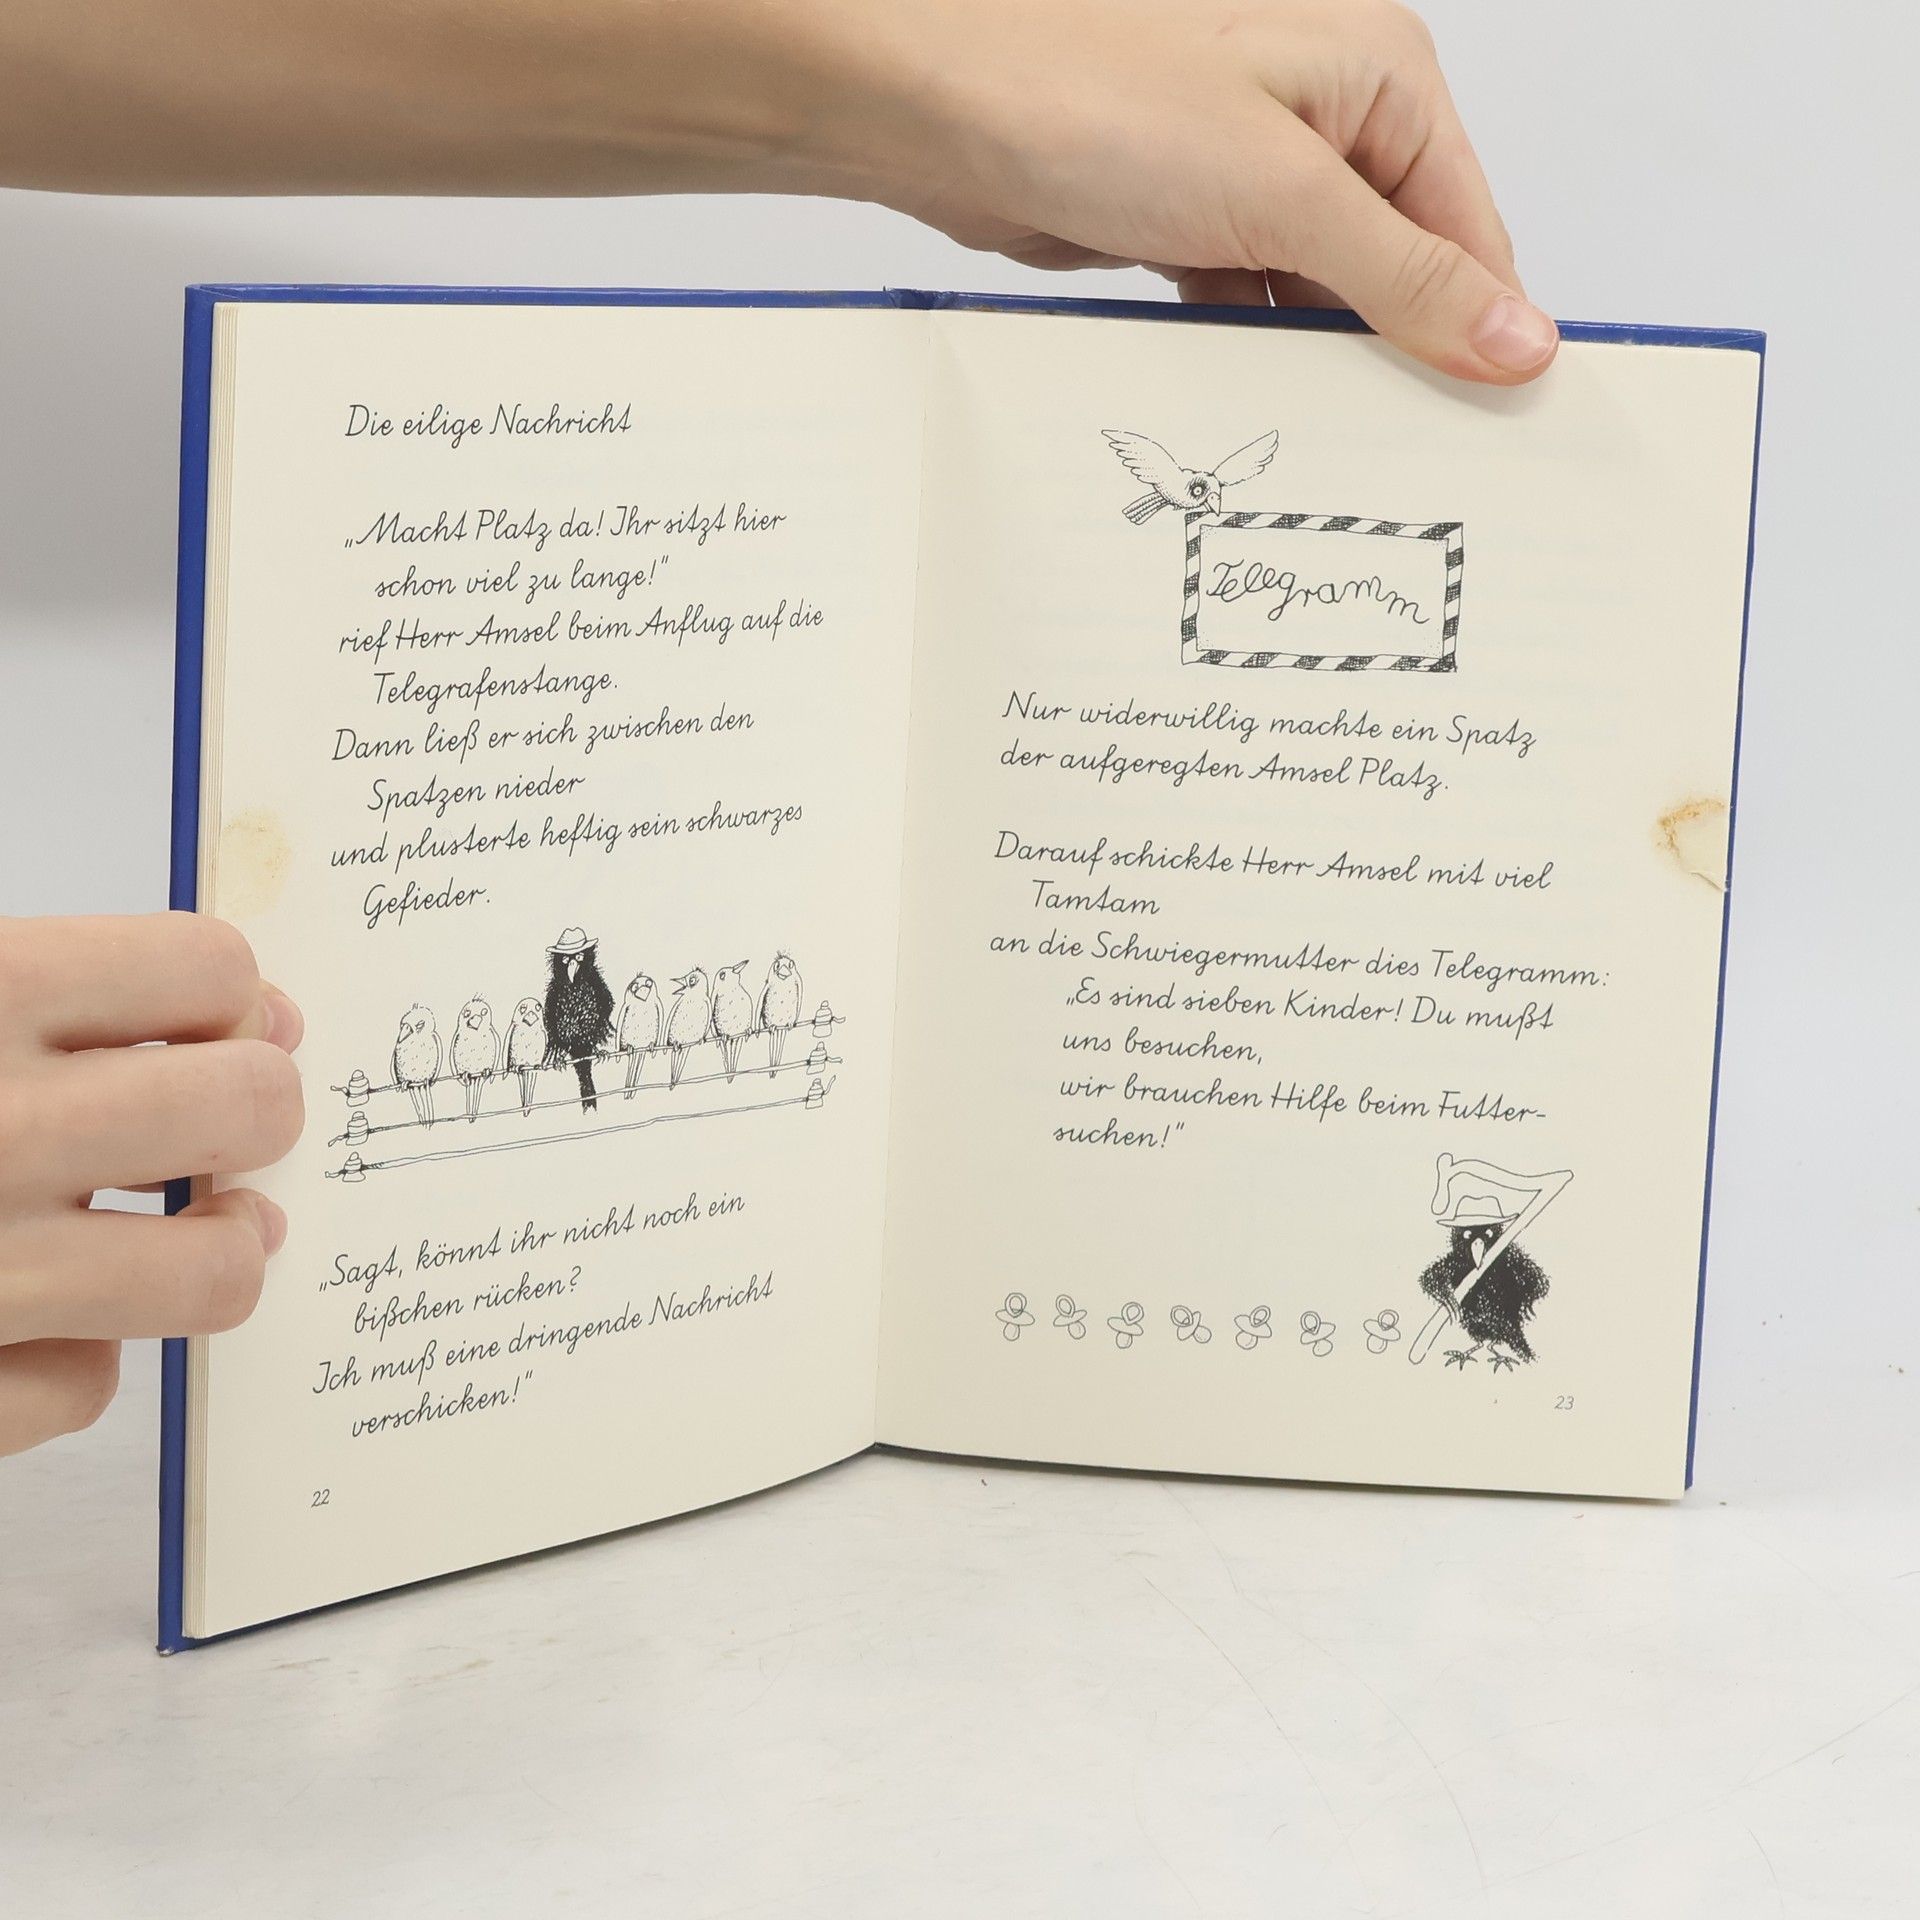 Die eilige Nachricht
„Macht Platz da! Ihr sitzt hier
schon viel zu lange!“
rief Herr Amsel beim Anflug auf die
Telegrafenstange.
Dann ließ er sich zwischen den
Spatzen nieder
und plusterte heftig sein schwarzes
Gefieder.
„Sagt, könnt ihr nicht noch ein
bißchen rücken?
Ich muß eine dringende Nachricht
verschicken!“
22
Telegramm
Nur widerwillig machte ein Spatz
der aufgeregten Amsel Platz.
Darauf schickte Herr Amsel mit viel
Tamtam
an die Schwiegermutter dies Telegramm:
„Es sind sieben Kinder! Du mußt
uns besuchen,
wir brauchen Hilfe beim Futter-
suchen!“
7
23